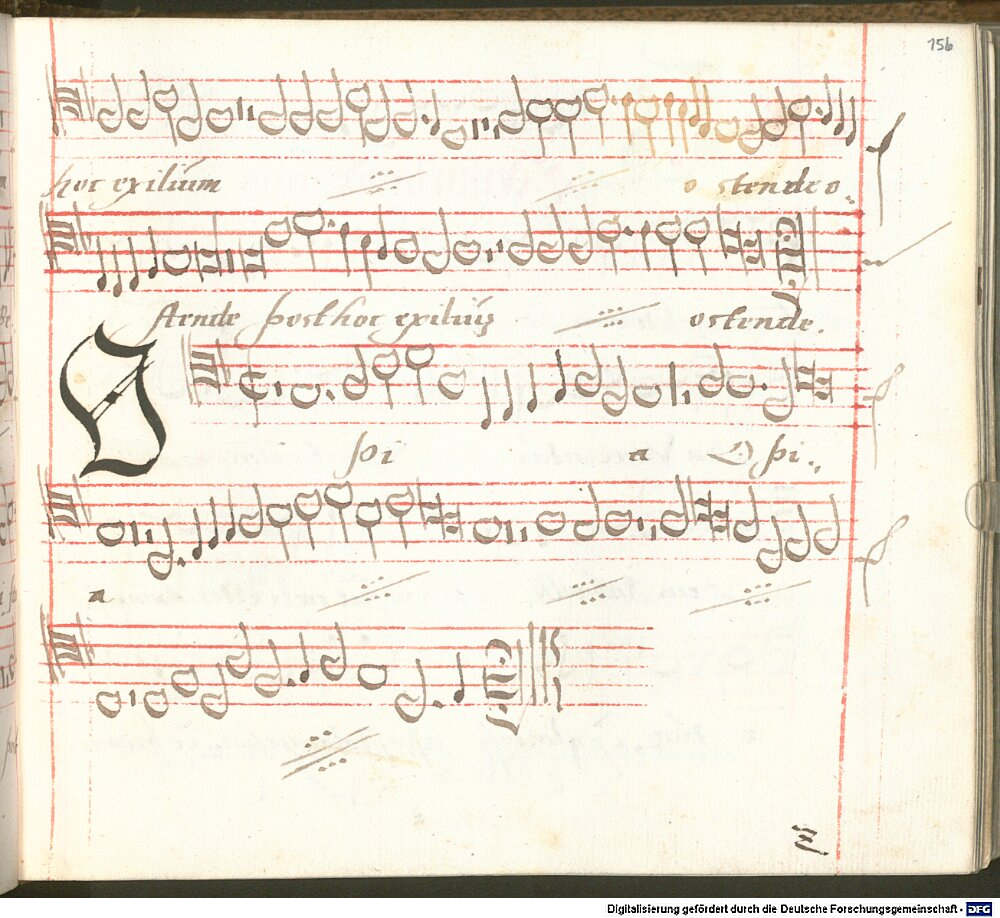 156
hoc exilium o stende o
stende post hoc exilium ostende.
O
pi a O pi
a
Digitalisierung gefördert durch die Deutsche Forschungsgemeinschaft - DFG